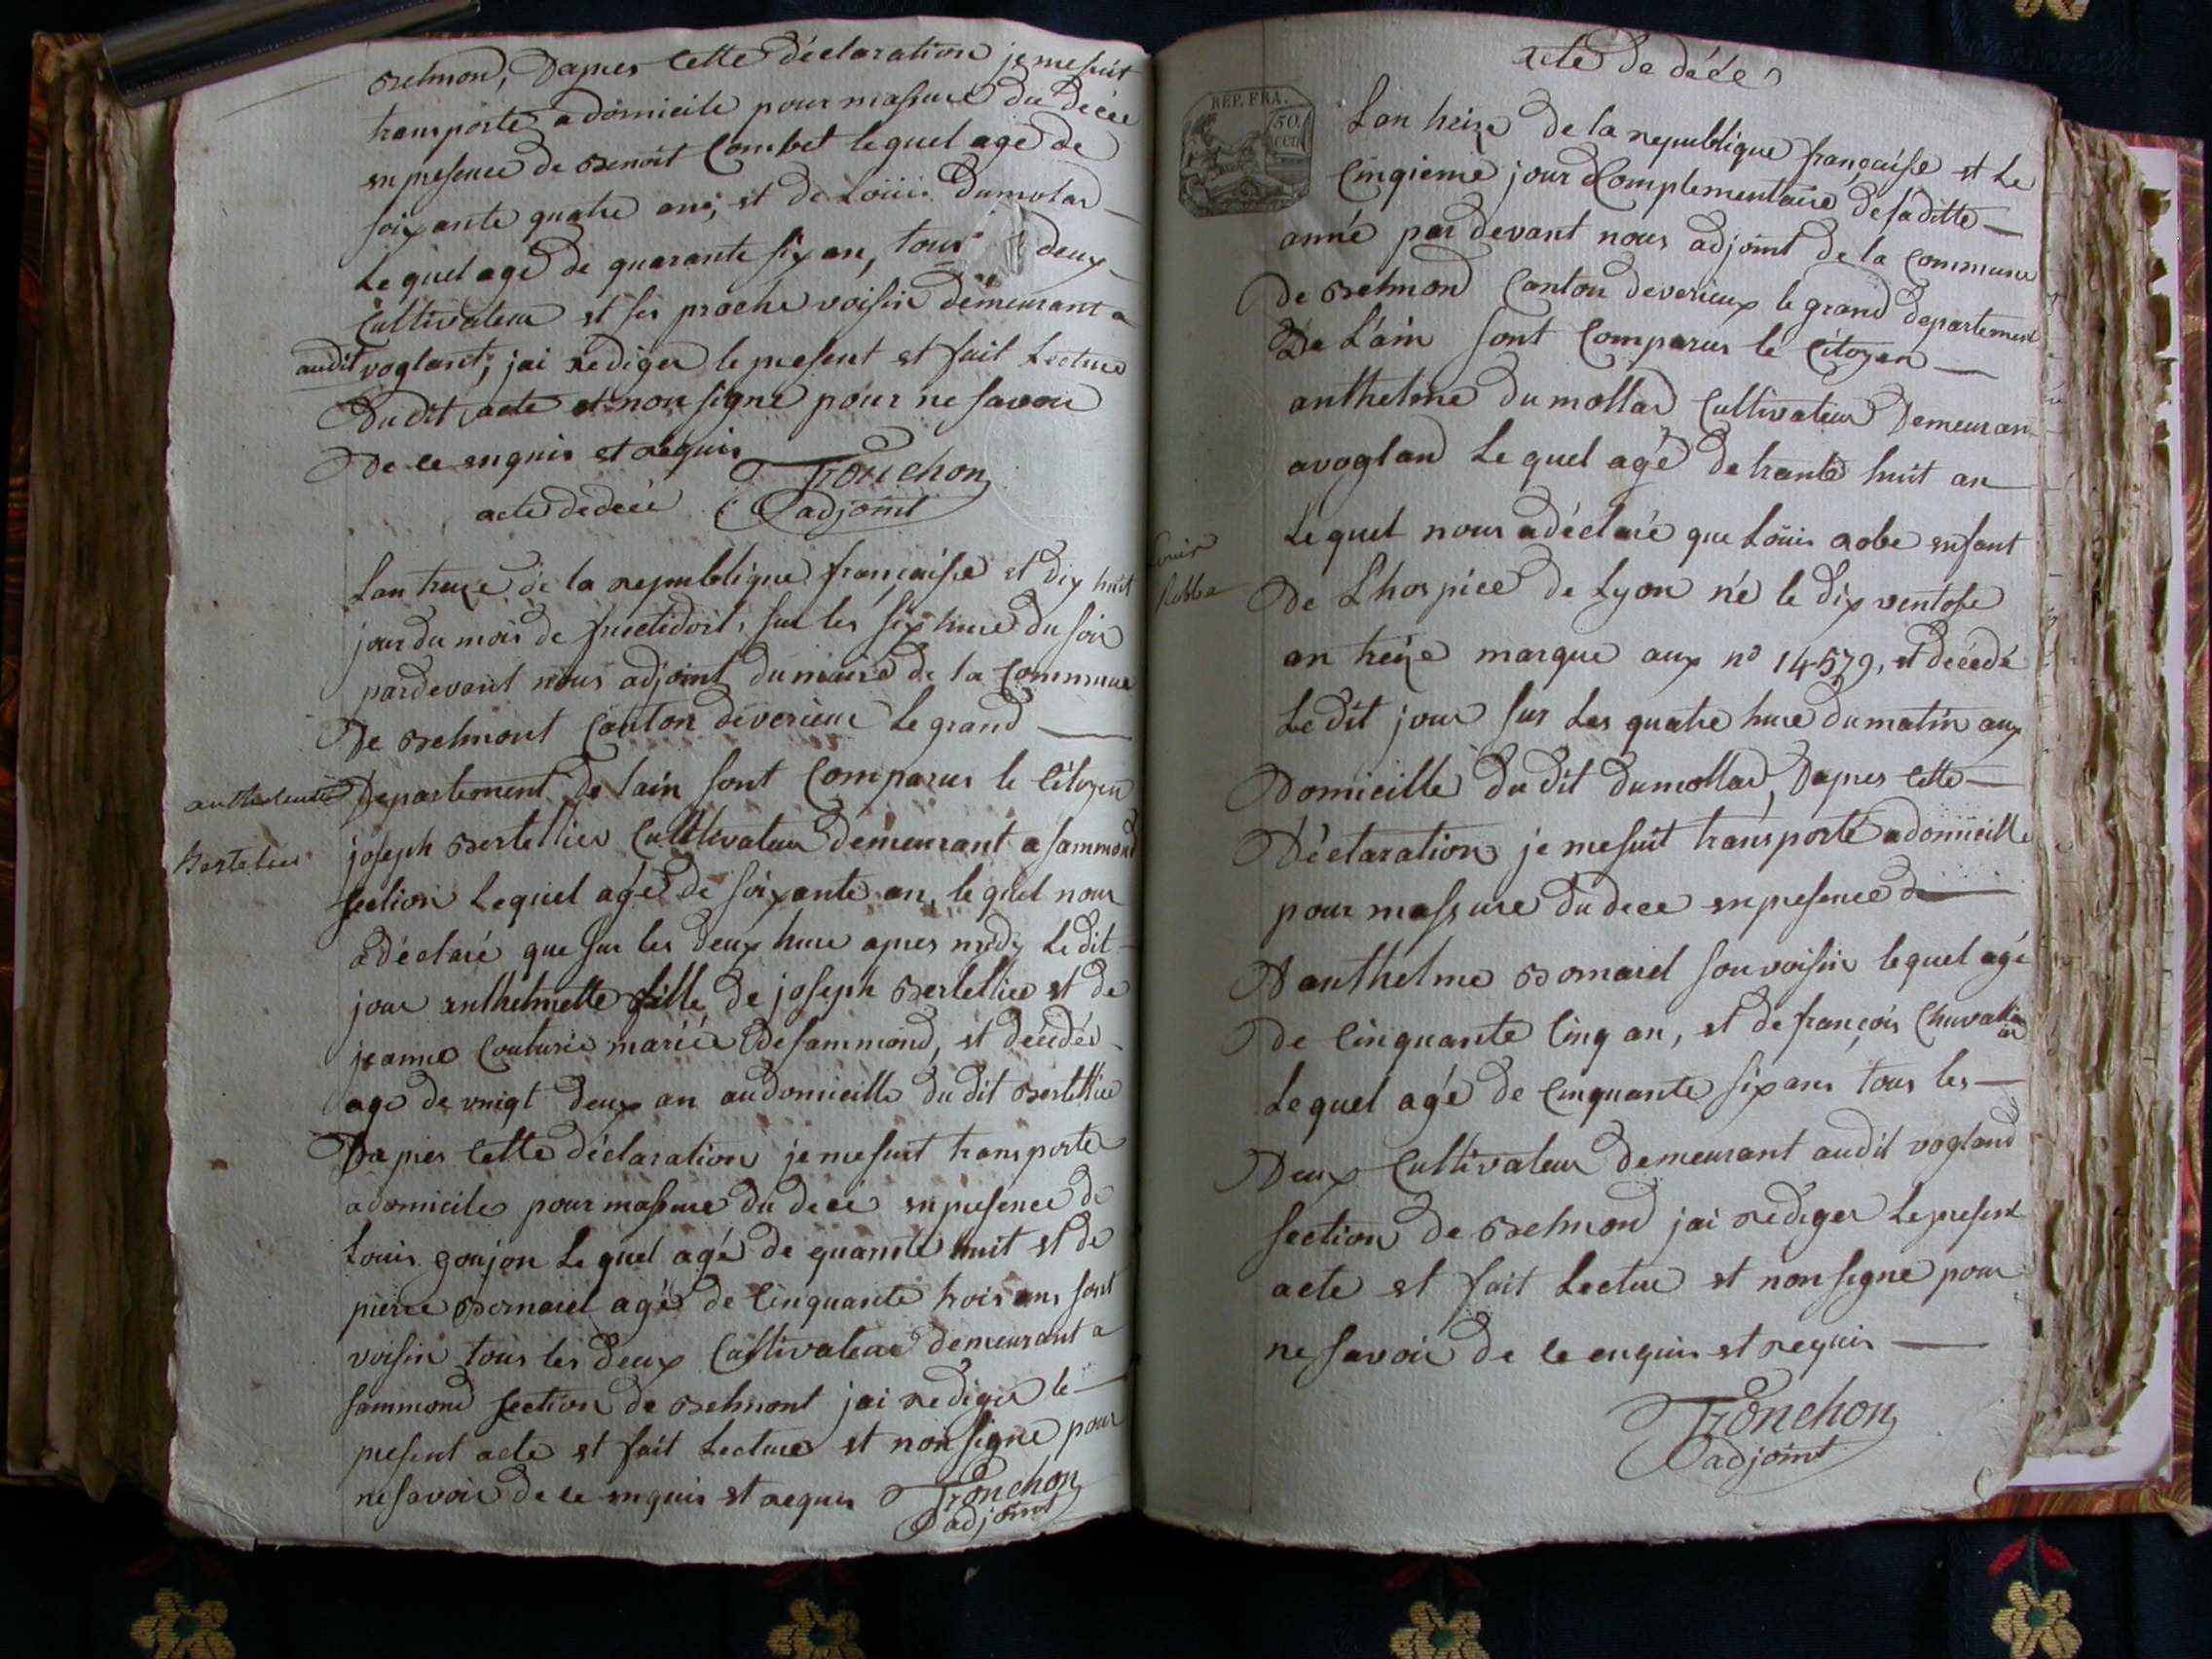 Belmond, Dapres Cette déclaration je me suit
transporte a domicile pour massure du décée
en presence de Benoit Combet lequel age de
soixante quatre ans, et de Loüis Dumolar
Le quel age de quarante six an, tous deux
Cultivateur et ses proche voisin demeurant a
audit voglant, jai rediger le present et fait Lecture
Du dit acte et non signe pour ne savoir
De ce enquis et requis
Tronchon
adjoint
acte de decée
Lan treize de la republique française et dix huit
jour du mois de fructidort, sur les six hure du soir
pardevant nous adjoint du maire de la Commune
De Belmont Canton de verieux Le grand
Departement de lain sont Comparus le Citoyen
anthelmette
Bertelier
joseph Bertellier Cultivateur demeurant a sammond
section Lequel agé de soixante an, le quel nous
a déclaré que sur les deux hure apres midy Le dit
jour anthelmette fille de joseph Bertellier et de
jeanne Couturié mariée de sammond, et décédée
age de vnigt deux an audomicille du dit Bertellier
Dapres Cette déclaration je me suit transporte
a domicile pour massure du decé en presence de
Louis goujon Le quel agé de quarante huit et de
pierre Bornarel agé de Cinquante trois ans sont
voisin tous les deux Cultivateur demeurant a
sammond section de Belmont jai rediger le
present acte et fait Lecture et non signe pour
ne savoir de ce enquis et requis
Tronchon
adjoint
acte de décée
REP. FRA.
50
cen
Lan treize de la republique française et Le
Cinqieme jour Complementaire de la ditte
année par devant nous adjoint de la Commune
De Belmond Canton de verieux le grand departement
De Lain sont Comparus le Citoyen
anthelme Dumollar Cultivateur Demeuran
a vogland Le quel agé de trante huit an
Le quel nous a déclaré que Loüis robe enfant
Louis
Robbe
De Lhospice de Lyon né le dix ventose
an treize marque aux no 14579, et décédé
Le dit jour sur Les quatre hure du matin aux
Domicille du dit Dumollar, Dapres Cette
Déclaration je me suit transporté a domicille
pour massure du dece en presence de
anthelme Bornarel son voisin lequel agé
De Cinquante Cinq an, et de françois Chuvallier
Le quel agé de Cinquante six ans tous les
Deux Cultivateur demeurant audit vogland
section de Belmond jai rediger Le present
acte et fait Lecture et non signe pour
ne savoir de ce enquis et requis
Tronchon
adjoint